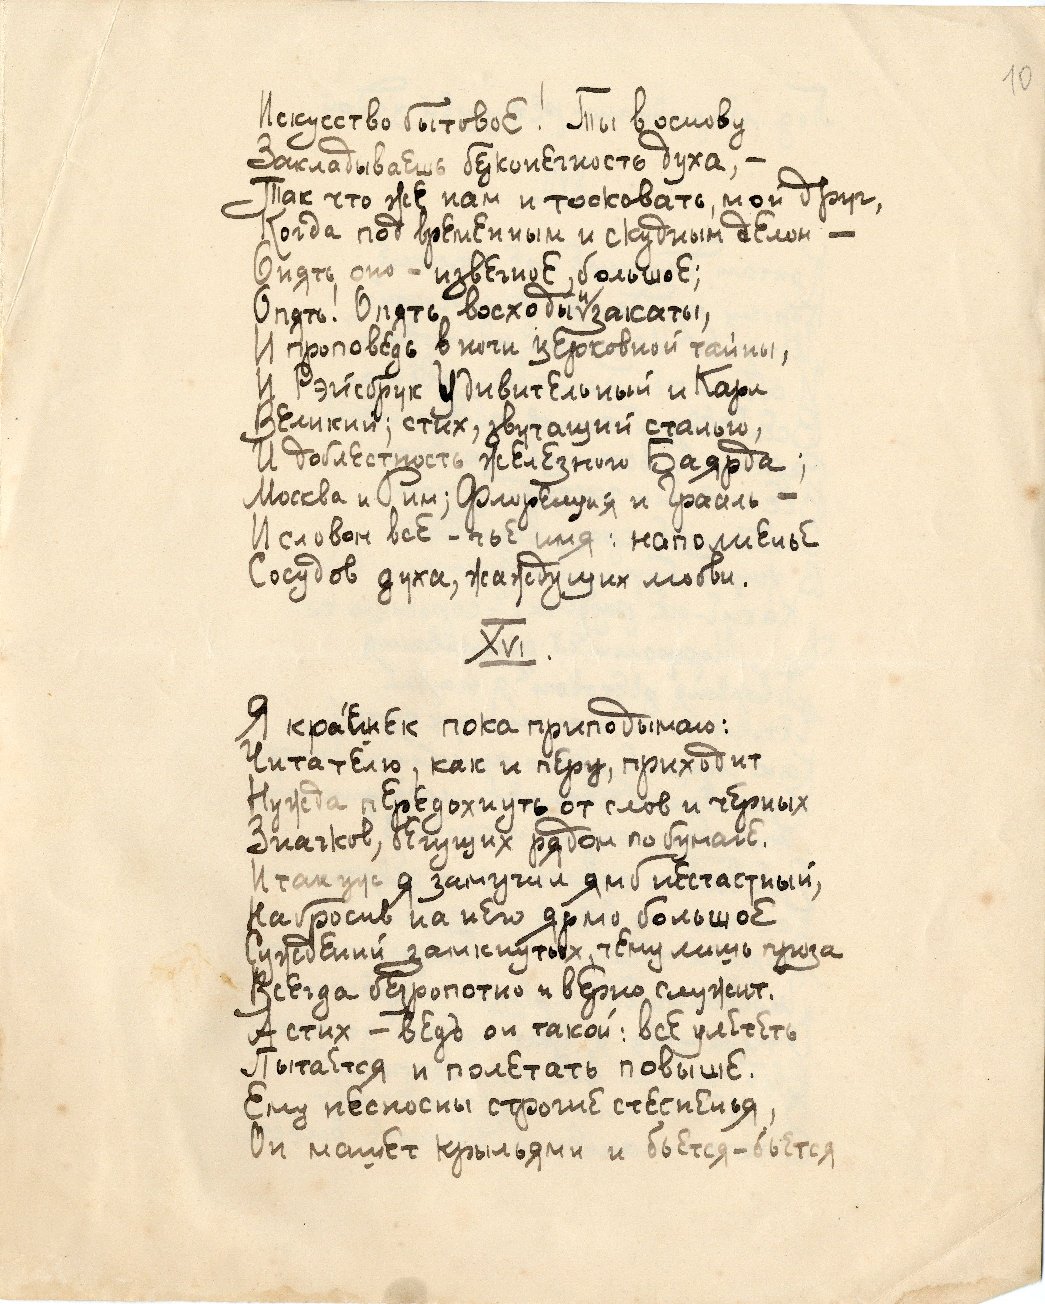 10
Искусство бытовое! Ты в основу
Закладываешь бесконечность духа, –
Так что же нам и тосковать, мой друг,
Когда под временным и скудным делом –
Опять оно – извечное, большое;
Опять! Опять восходы и закаты,
И проповедь в ночи церковной тайны,
И Рэйсбрук Удивительный и Карл
Великий; стих, звучащий сталью,
И доблестность железного Баярда;
Москва и Рим; Флоренция и Грааль –
И словом все – чье имя: наполненье
Сосудов духа, жаждущих любви.
XVI.
Я краешек пока приподымаю:
Читателю, как и перу, приходит
Нужда передохнуть от слов и черных
Значков, бегущих рядом по бумаге.
И так уус я замучил ямб несчастный,
Набросив на него ярмо большое
Суждений замкнутых, чему лишь проза
Всегда безропотно и верно служит.
А стих – ведь он такой: все улететь
Пытается и полетать повыше.
Ему несносны строгие стесненья,
Он машет крыльями и бьется-бьется